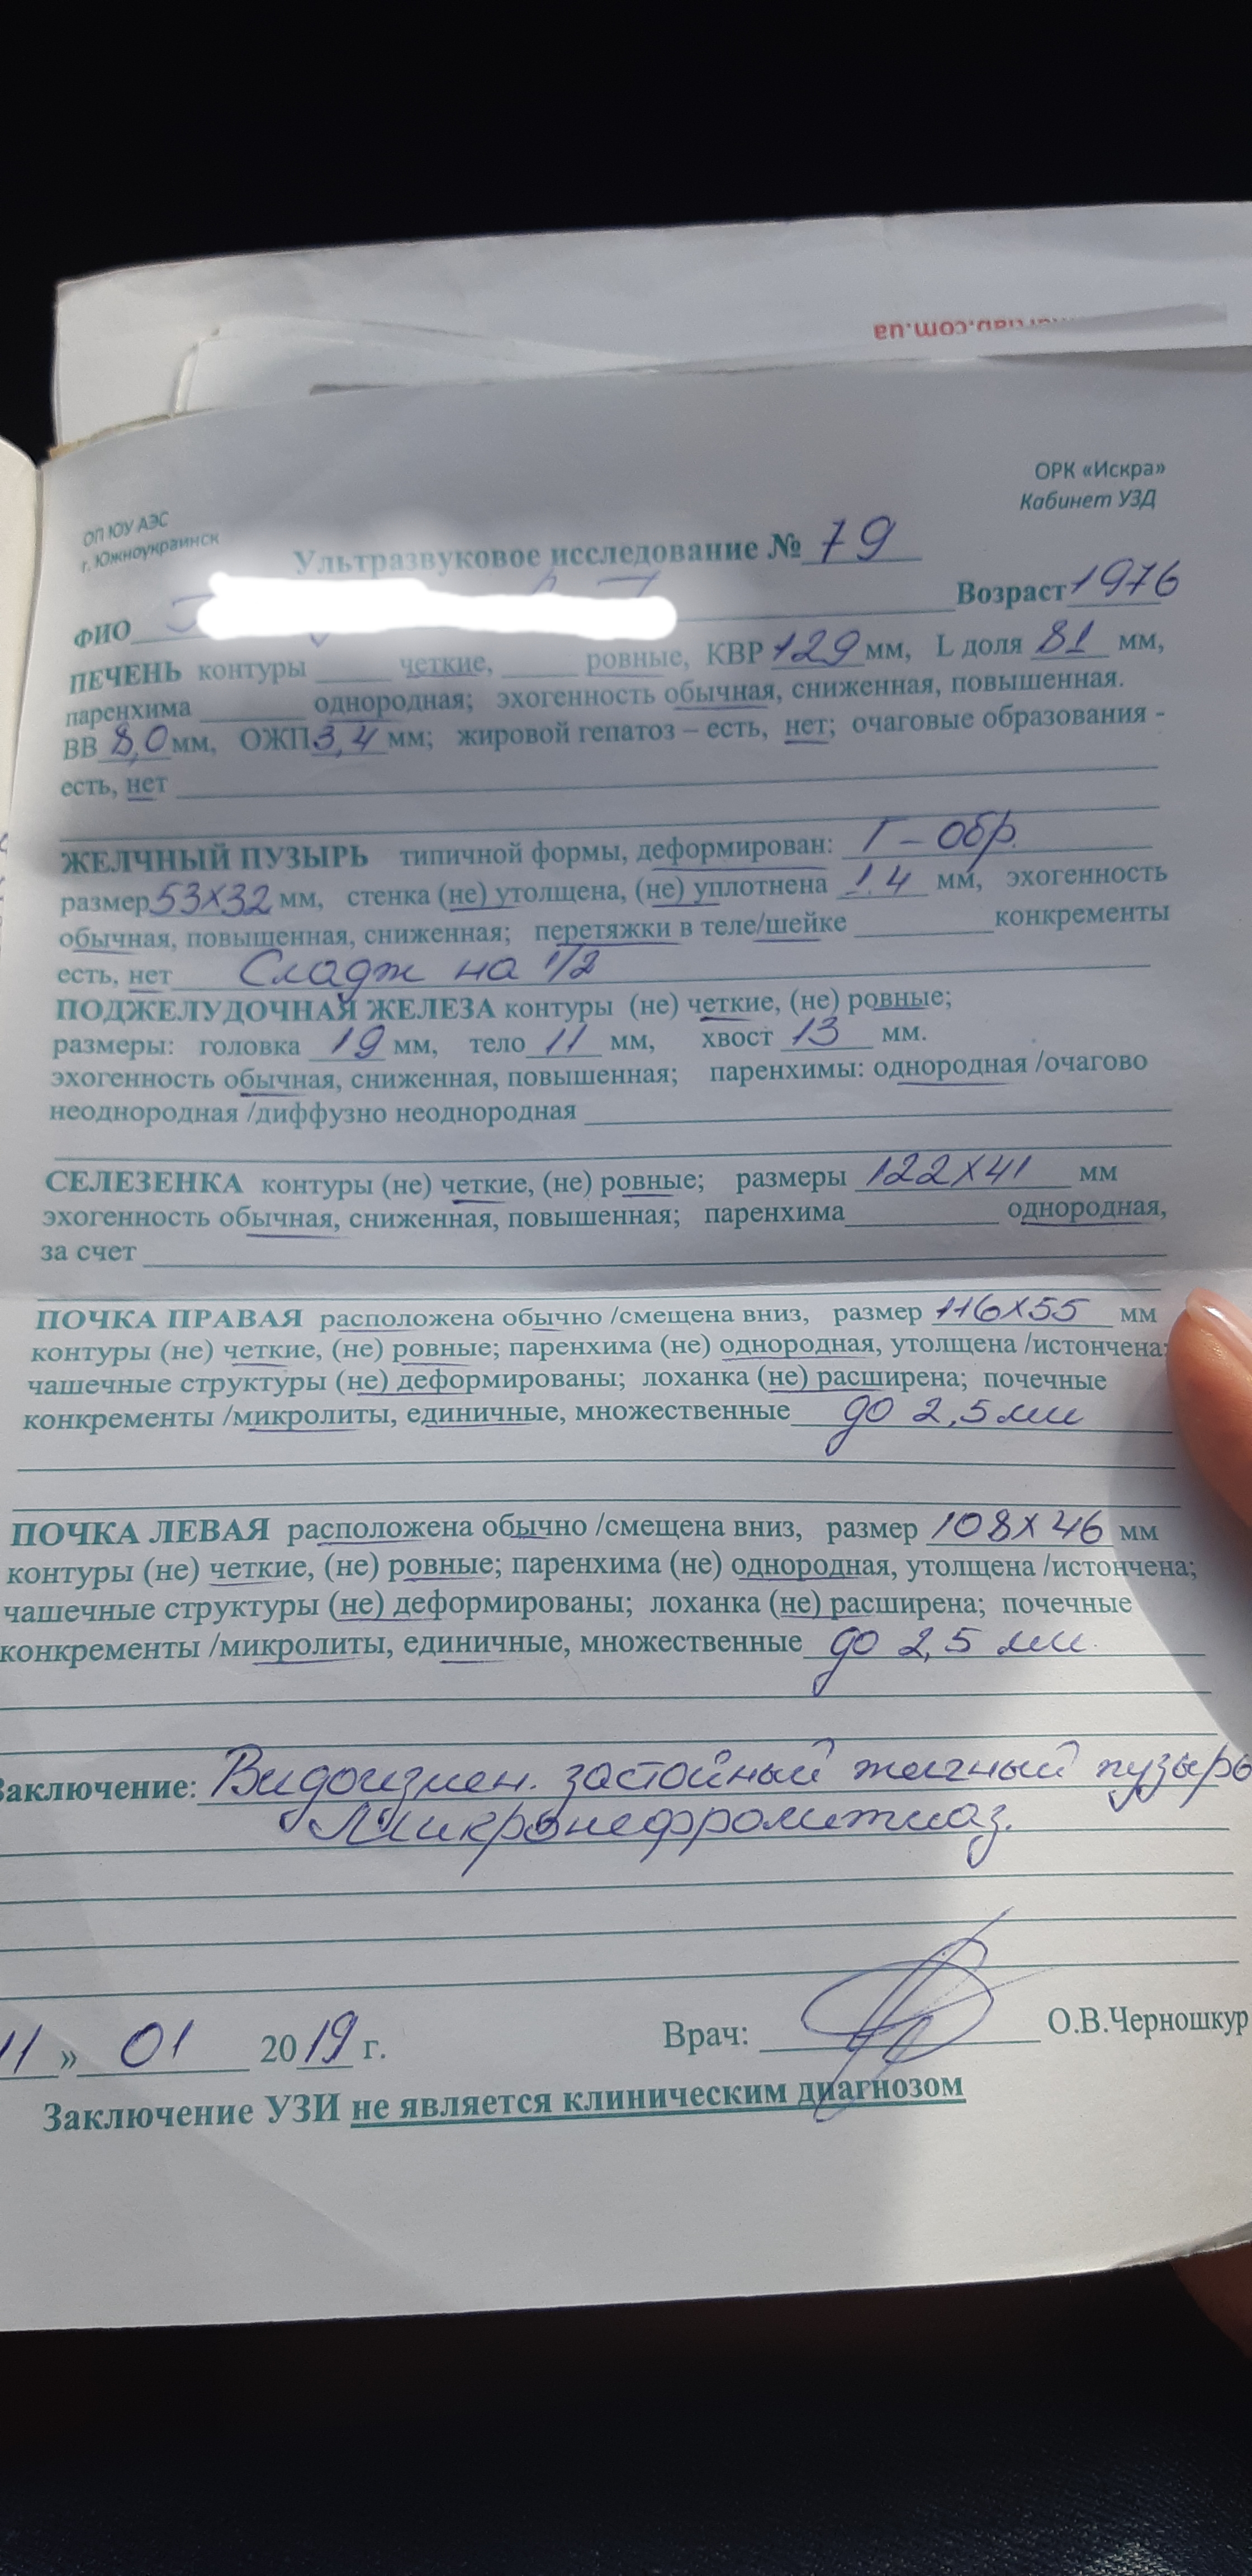 ОРК «Искра»
Кабинет УЗД
ОП ЮУ АЭС
г. Южноукраинск
Ультразвуковое исследование № 79
ФИО Возраст 1976
ПЕЧЕНЬ контуры четкие, ровные, КВР 129 мм, L доля 81 мм,
паренхима однородная; эхогенность обычная, сниженная, повышенная.
ВВ 8,0 мм, ОЖП 3,4 мм; жировой гепатоз – есть, нет; очаговые образования -
есть, нет
ЖЕЛЧНЫЙ ПУЗЫРЬ типичной формы, деформирован: Г – обр.
размер 53х32 мм, стенка (не) утолщена, (не) уплотнена 1.4 мм, эхогенность
обычная, повышенная, сниженная; перетяжки в теле/шейке конкременты
есть, нет Сладж на 1/2
ПОДЖЕЛУДОЧНАЯ ЖЕЛЕЗА контуры (не) четкие, (не) ровные;
размеры: головка 19 мм, тело 11 мм, хвост 13 мм.
эхогенность обычная, сниженная, повышенная; паренхимы: однородная /очагово
неоднородная /диффузно неоднородная
СЕЛЕЗЕНКА контуры (не) четкие, (не) ровные; размеры 122х41 мм
эхогенность обычная, сниженная, повышенная; паренхима однородная,
за счет
ПОЧКА ПРАВАЯ расположена обычно /смещена вниз, размер 116х55 мм
контуры (не) четкие, (не) ровные; паренхима (не) однородная, утолщена /истончена;
чашечные структуры (не) деформированы; лоханка (не) расширена; почечные
конкременты /микролиты, единичные, множественные до 2,5 мм
ПОЧКА ЛЕВАЯ расположена обычно /смещена вниз, размер 108х46 мм
контуры (не) четкие, (не) ровные; паренхима (не) однородная, утолщена /истончена;
чашечные структуры (не) деформированы; лоханка (не) расширена; почечные
конкременты /микролиты, единичные, множественные до 2,5 мм.
Заключение: Видоизмен. застойный желчный пузырь
Микронефролитиаз.
11 » 01 2019 г. Врач: О.В.Черношкур
Заключение УЗИ не является клиническим диагнозом